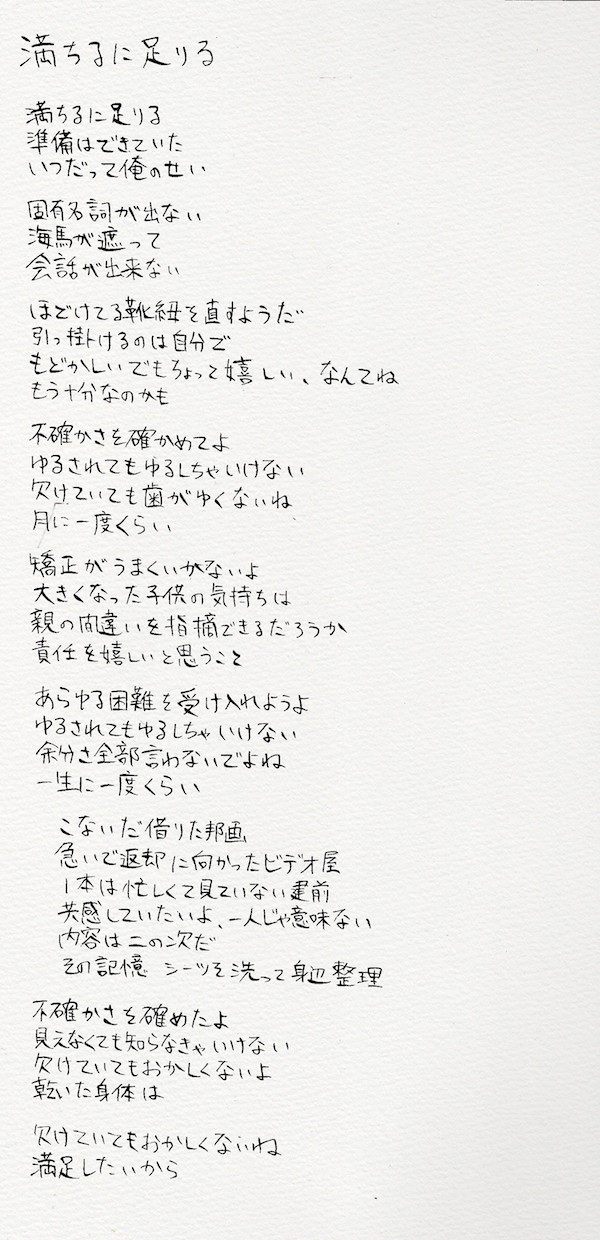 満ちるに足りる
満ちるに足りる
準備はできていた
いつだって俺のせい
固有名詞が出ない
海馬が遮って
会話が出来ない
ほどけてる靴紐を直すようだ
引っ掛けるのは自分で
もどかしいでもちょって嬉しい、なんてね
もう十分なのかも
不確かさを確かめてよ
ゆるされてもゆるしちゃいけない
欠けていても歯がゆくないね
月に一度くらい
矯正がうまくいかないよ
大きくなった子供の気持ちは
親の間違いを指摘できるだろうか
責任を嬉しいと思うこと
あらゆる困難を受け入れようよ
ゆるされてもゆるしちゃいけない
余分さ全部言わないでよね
一生に一度くらい
こないだ借りた邦画
急いで返却に向かったビデオ屋
1本は忙しくて見ていない建前
共感していたいよ、一人じゃ意味ない
内容は二の次だ
その記憶 シーツを洗って身辺整理
不確かさを確めたよ
見えなくても知らなきゃいけない
欠けていてもおかしくないよ
乾いた身体は
欠けていてもおかしくないね
満足したいから